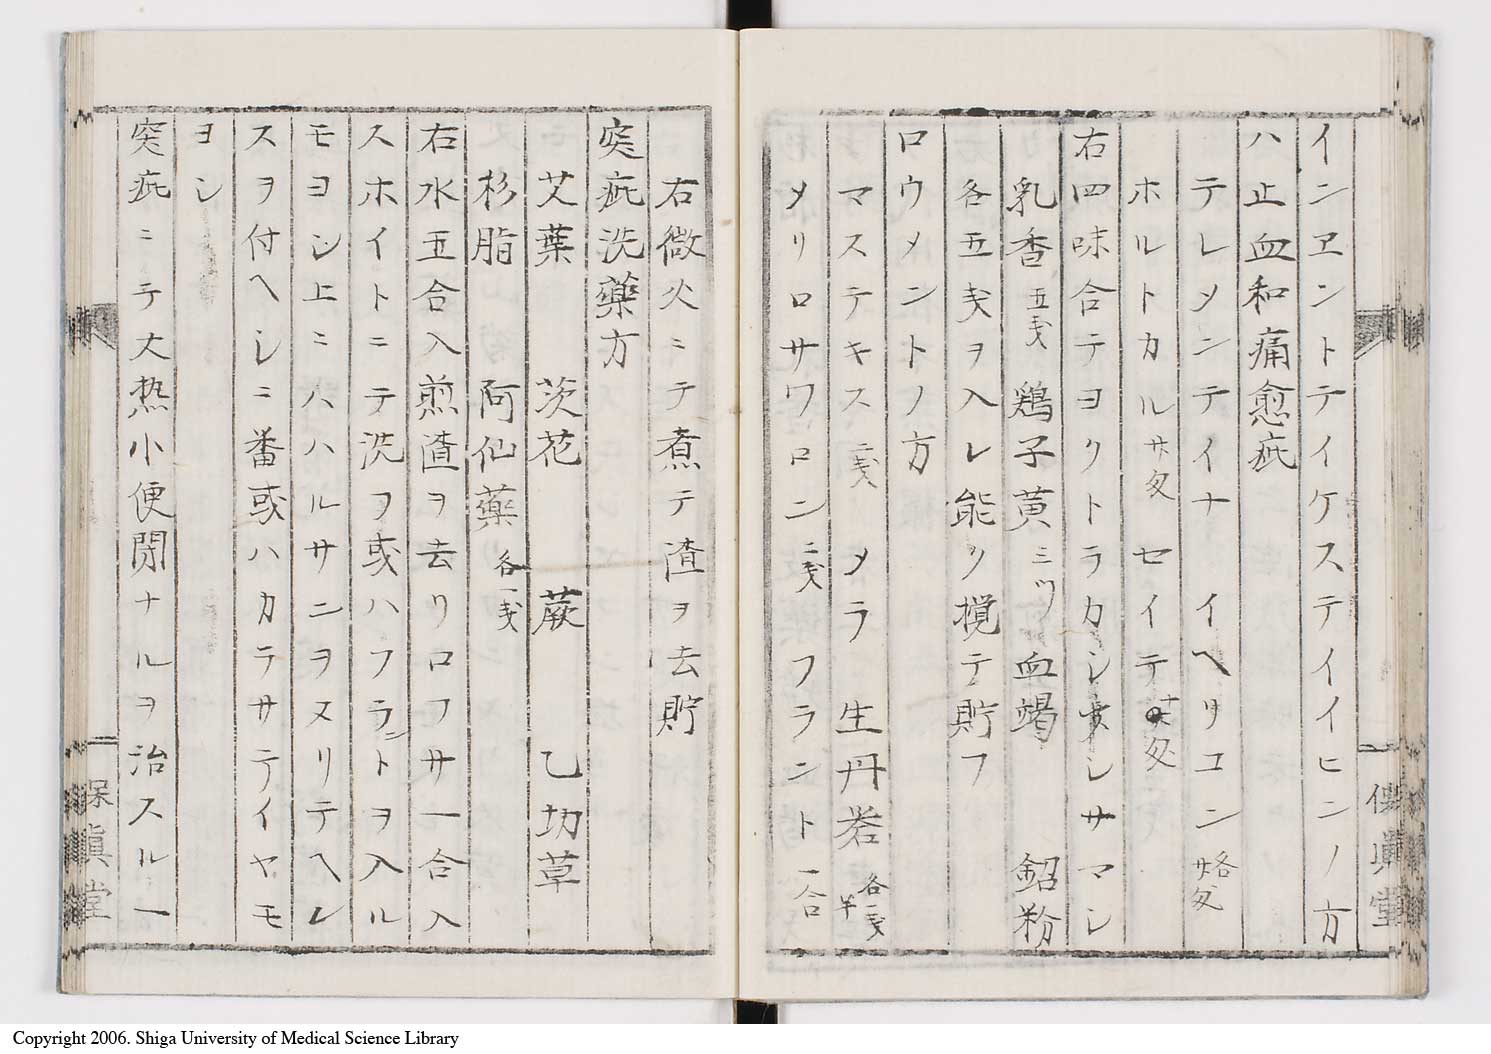 インヱントテイケステイイヒンノ方
ハ止血和痛愈疵
テレメンテイナ イヘリコン
ホルトカル セイテ
右四味合テヨクトラカシ シサマシ
乳香五戔 鶏子黄三ツ 血竭 鉊粉
各五戔ヲ入レ能ク攪テ貯フ
ロウメントノ方
マステキス二戔 メラ 生丹 各一戔半
メリロサワロン二戔 フラント一合
右微火ニテ煮テ渣ヲ去貯
突疵洗藥方
艾葉 茨花 蕨 乙切草
杉脂 阿仙藥各一戔
右水五合入煎渣ヲ去リロフサ一合入
スホイトニテ洗フ或ハフラントヲ入ル
モヨシ上ニハハルサンヲヌリテヘレ
スヲ付ヘシニ番或ハカテサテイヤモ
ヨシ
突疵ニテ大热小便閉ナルヲ治スル一
保眞堂
保眞堂
Copyright 2006. Shiga University of Medical Science Library